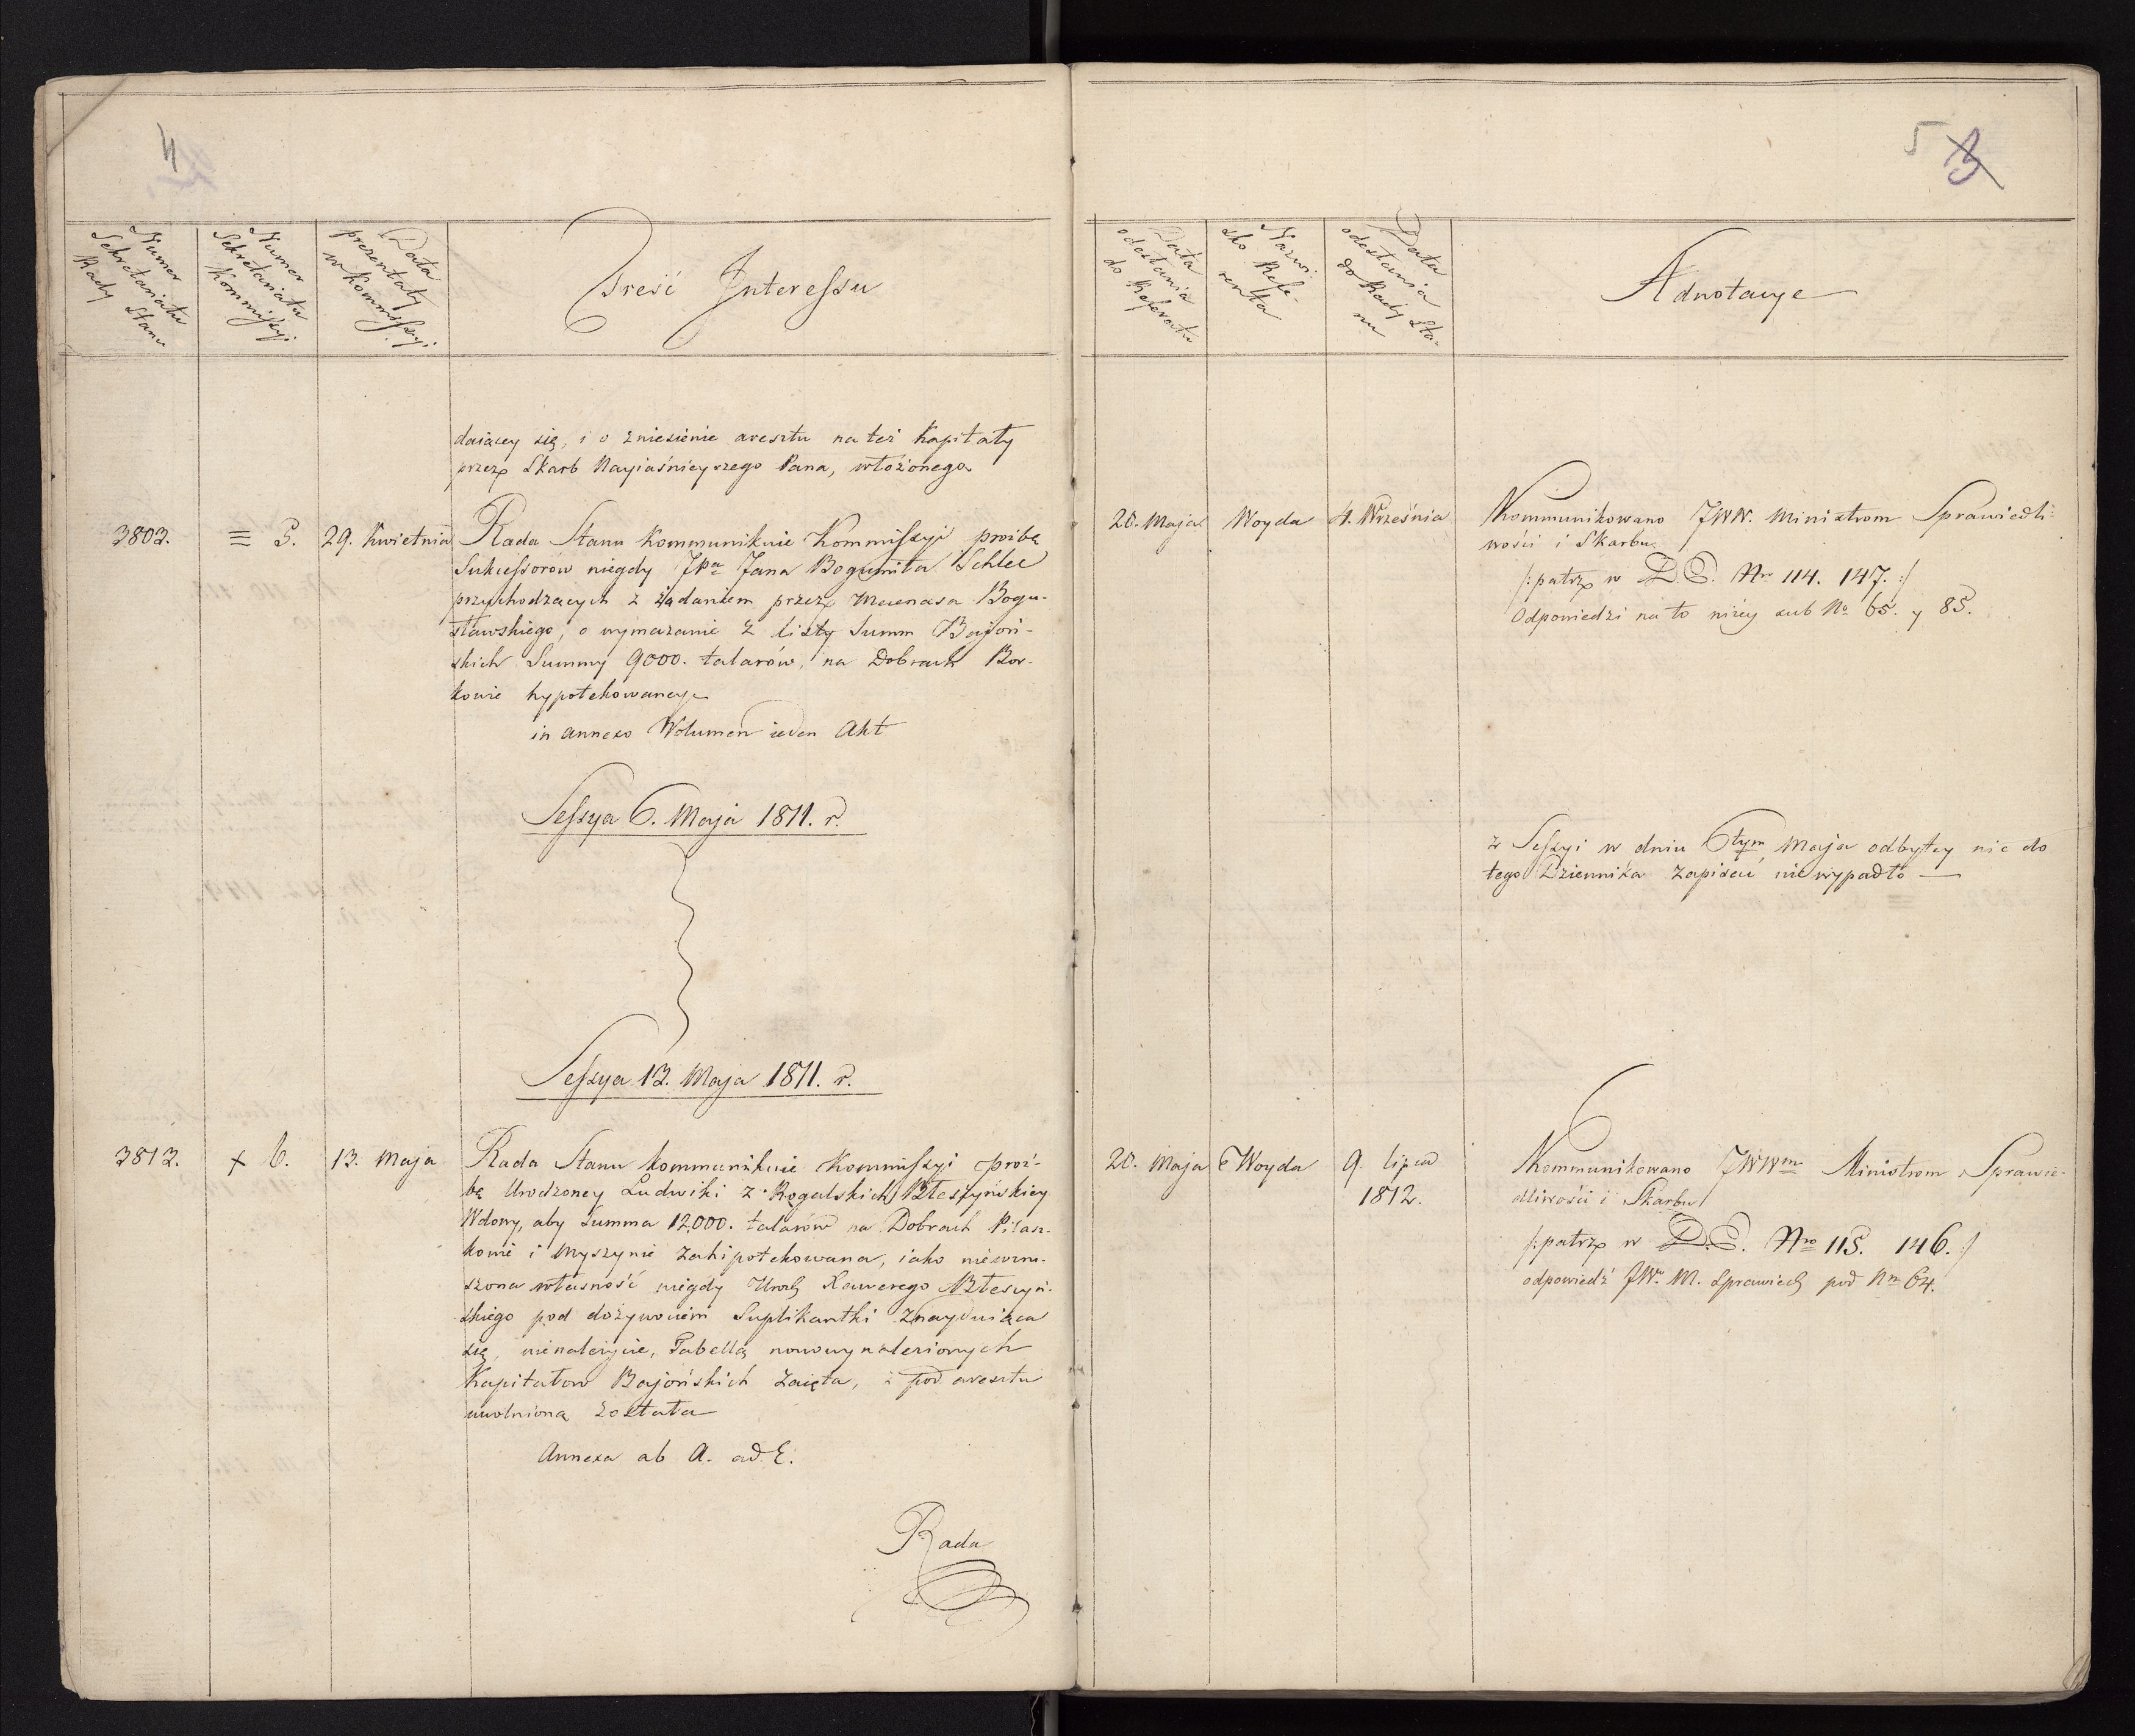 4
Numer
Sekretariatu
Rady Stanu
Numer
Sekretariatu
Kommiſzyi
Data
prezentaty
w Kommiſzyi
Treść Intereſsu
daiącey się, i o zniesienie aresztu na też Kapitały
przez Skarb Nayiaśnieyszego Pana, włożonego
3803.
5.
29. Kwietnia
Rada Stanu Kommunikuie Kommiſzyi proźbę
Sukceſsorów niegdy JPa Jana Bogumiła Schlee
przychodzących z żądaniem przez Mecenasa Bogu-
sławskiego, o wymazanie z listy Summ Bajoń-
skich Summy 9000. talarów, na Dobrach Bor-
kowie hypotekowaney
in annexo Wolumen ieden Akt
Seſsya 6. Maja 1811. r.
Seſsya 13. Maja 1811. r.
3813.
+ 6.
13. Maja
Rada Stanu kommunikuie Kommiſzyi proź-
bę Urodzoney Ludwiki z Rogalskich Błeszyńskiey
Wdowy, aby Summa 12,000. talarów na Dobrach Piłasz-
kowie i Myszynie zahipotekowana, iako niewzru-
szona własność niegdy Urodz Xawerego Błeszyń-
skiego pod dożywociem Suplikantki znayduiąca
się, nienależycie, Tabellą nowowynalezionych
Kapitałow Bajońskich zaięta, z pod aresztu
uwolnioną została
Annexa ab A. ad E.
Rada
5 3
Data
odesłania
do Referatu
Nazwi-
sko Refe-
renta
Data
odesłania
do Rady Sta-
nu
Adnotacye
20. Maja
Woyda
4. Września
Kommunikowano JWW. Ministrom Sprawiedli-
wości i Skarbu
/: patrz w D.E. Nro 114. 147. :/
Odpowiedzi na to niżey sub No 65. y 85.
z Seſzyi w dniu 6tym Maja odbytey nic do
tego Dziennika zapisać nie wypadło —
20. Maja
Woyda
9. lipca
1812.
Kommunikowano JWWm Ministrom Sprawie-
dliwości i Skarbu
/: patrz w D.E. Nro 115. 146. :/
odpowiedź JW. M. Sprawiedl pod Nro 64.